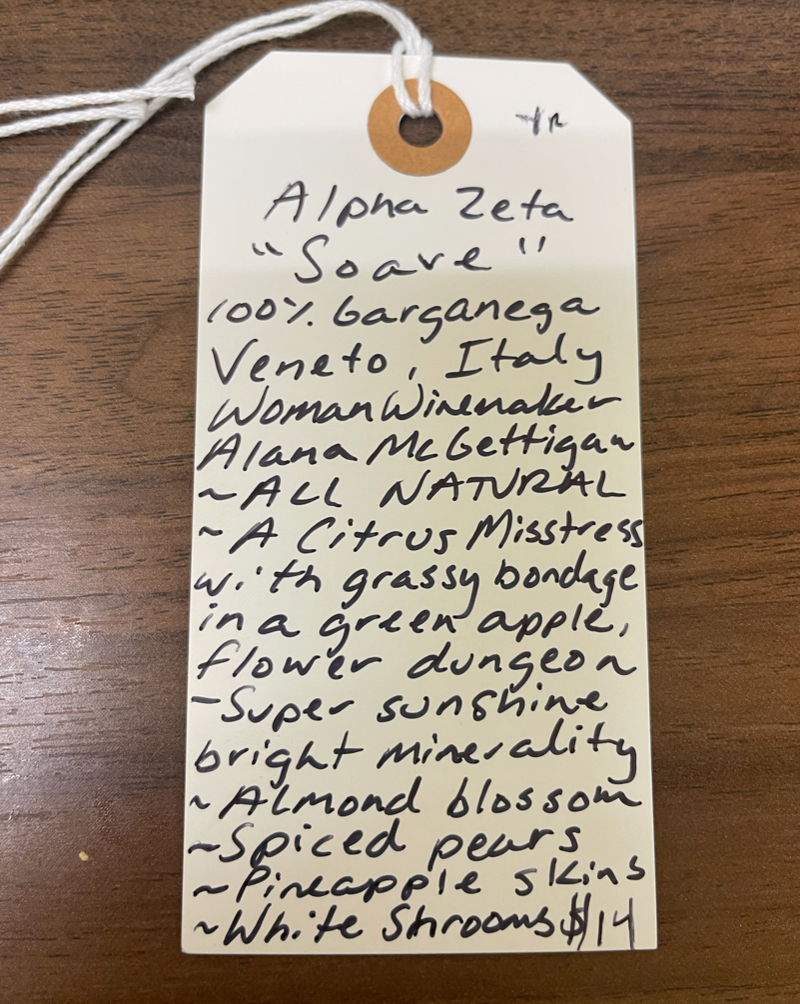 Alpha Zeta
"Soave"
100% Garganega
Veneto, Italy
Woman Winemaker
Alana McGettigan
~ALL NATURAL
~A Citrus Misstress
with grassy bondage
in a green apple,
flower dungeon
-Super sunshine
bright minerality
~Almond blossom
~Spiced pears
~Pineapple skins
~White Shrooms $14